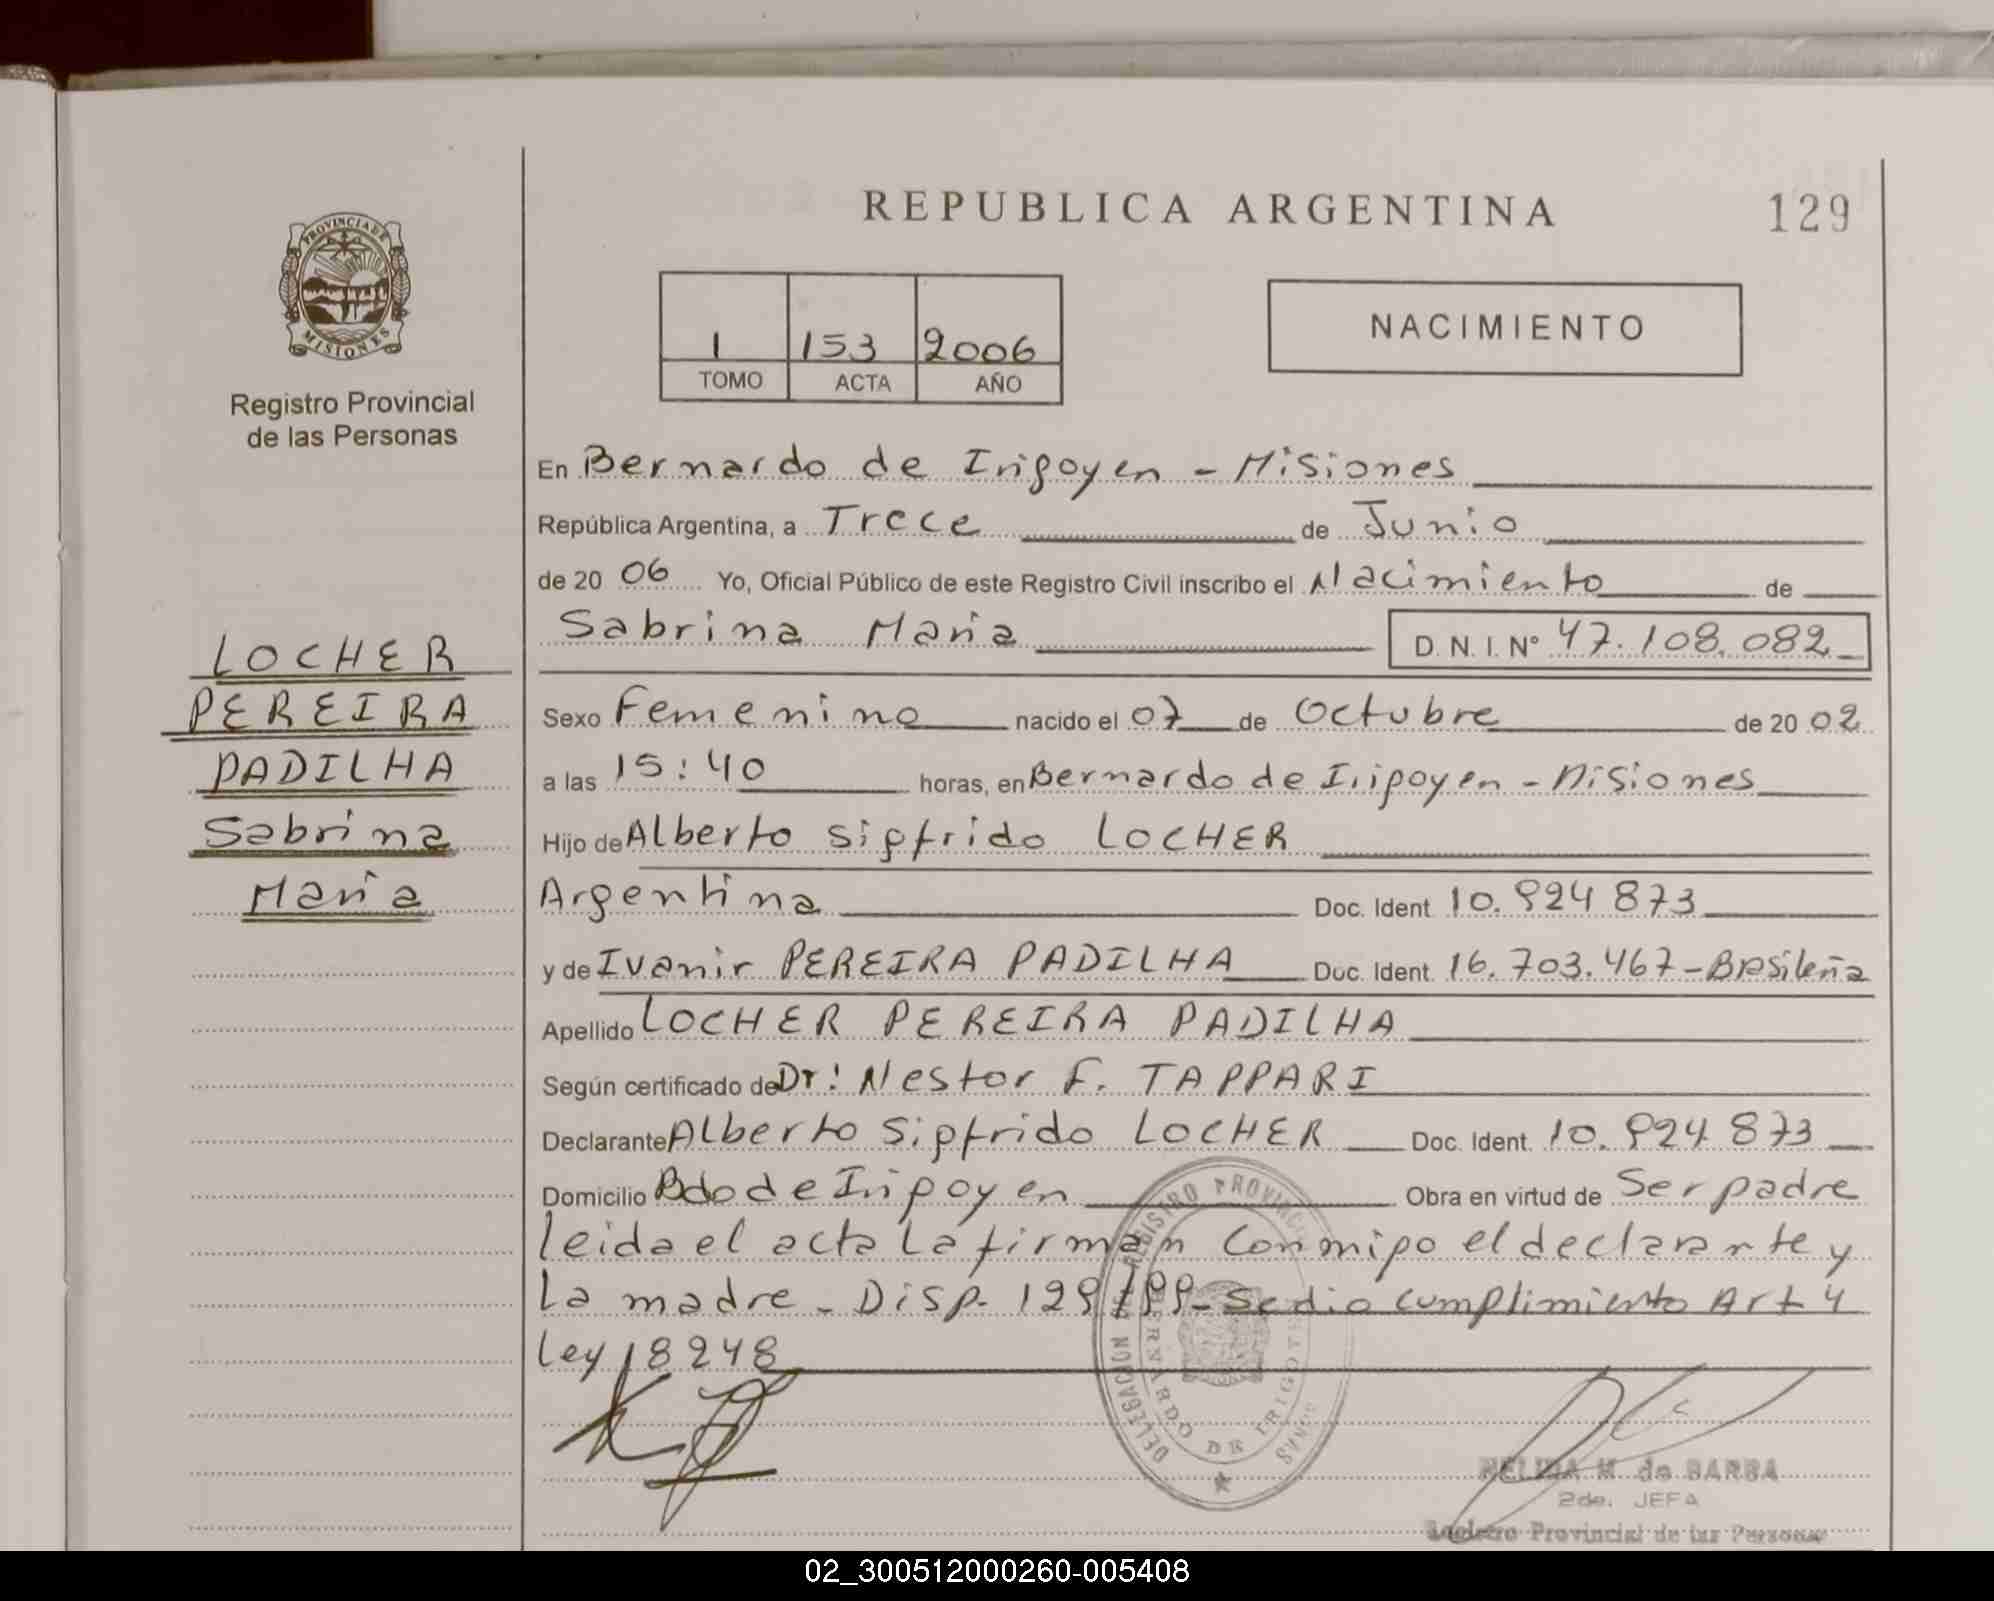 REPUBLICA ARGENTINA
129
PROVINCIA DE
MISIONES
Registro Provincial
de las Personas
1 153 2006
TOMO ACTA AÑO
NACIMIENTO
LOCHER
PEREIRA
PADILHA
Sabrina
María
En Bernardo de Irigoyen - Misiones
República Argentina, a Trece de Junio
de 20 06 Yo, Oficial Público de este Registro Civil inscribo el Nacimiento de
Sabrina María D. N. I. Nº 47.108.082
Sexo Femenino nacido el 07 de Octubre de 20 02
a las 15:40 horas, en Bernardo de Irigoyen - Misiones
Hijo de Alberto Sigfrido LOCHER
Argentina Doc. Ident. 10.924 873
y de Ivanir PEREIRA PADILHA Doc. Ident. 16.703.467 - Brasileña
Apellido LOCHER PEREIRA PADILHA
Según certificado de Dr: Nestor F. TAPPARI
Declarante Alberto Sigfrido LOCHER Doc. Ident. 10.924 873
Domicilio Bdo de Irigoyen Obra en virtud de Ser padre
leida el acta la firman conmigo el declarante y
la madre - Disp. 129/99 - Se dio cumplimiento Art 4
Ley 18248
DELEGACION DE REGISTRO PROVINCIAL
BERNARDO DE IRIGOYEN
NELIDA M. de BARBA
2da. JEFA
Registro Provincial de las Personas
02_300512000260-005408